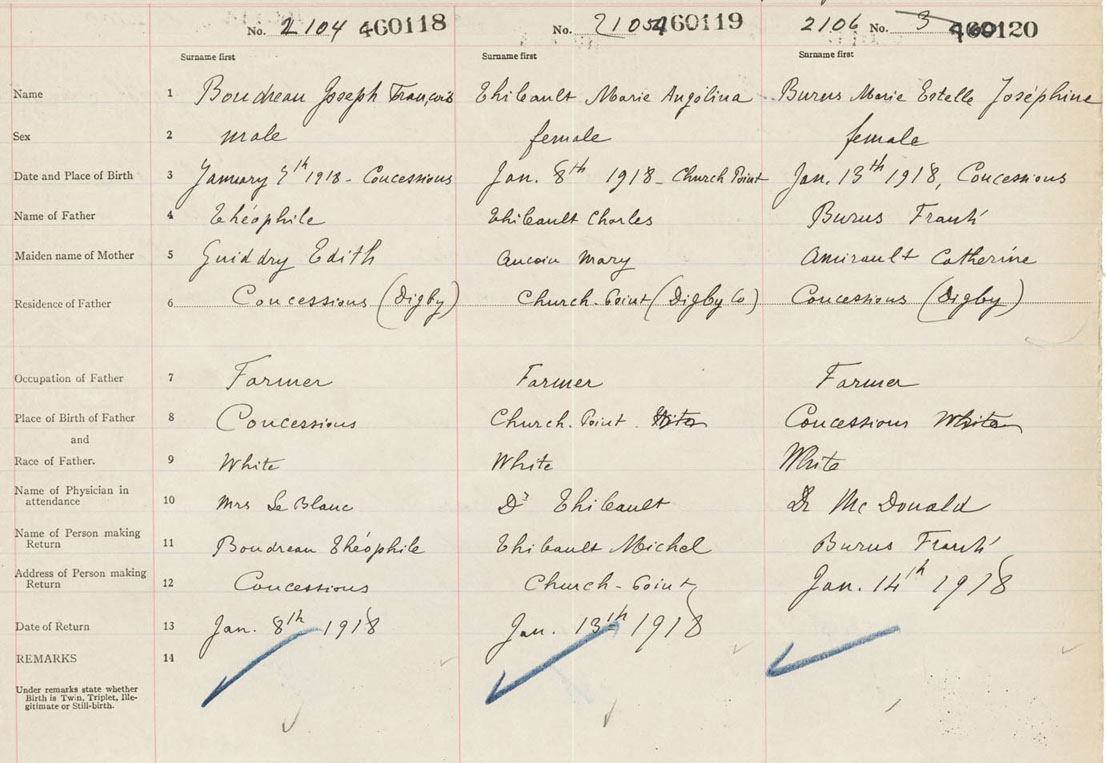 No. 2104 460118 No. 2105 460119 2106 No. 3 460120
Surname first Surname first Surname first
Name 1 Boudreau Joseph François Thibault Marie Angélina Burns Marie Estelle Joséphine
Sex 2 male female female
Date and Place of Birth 3 January 7th 1918 - Concessions Jan. 8th 1918 - Church Point Jan. 13th 1918, Concessions
Name of Father 4 Théophile Thibault Charles Burns Frank
Maiden name of Mother 5 Guiddry Edith Aucoin Mary Amirault Catherine
Residence of Father 6 Concessions (Digby) Church-Point (Digby Co) Concessions (Digby)
Occupation of Father 7 Farmer Farmer Farmer
Place of Birth of Father 8 Concessions Church-Point Concessions White
and
Race of Father. 9 White White White
Name of Physician in
attendance 10 Mrs Le Blanc Dr Thibault Dr McDonald
Name of Person making
Return 11 Boudreau Théophile Thibault Michel Burns Frank
Address of Person making
Return 12 Concessions Church-Point Jan. 14th 1918
Date of Return 13 Jan. 8th 1918 Jan. 13th 1918
REMARKS 14
Under remarks state whether
Birth is Twin, Triplet, Ille-
gitimate or Still-birth.